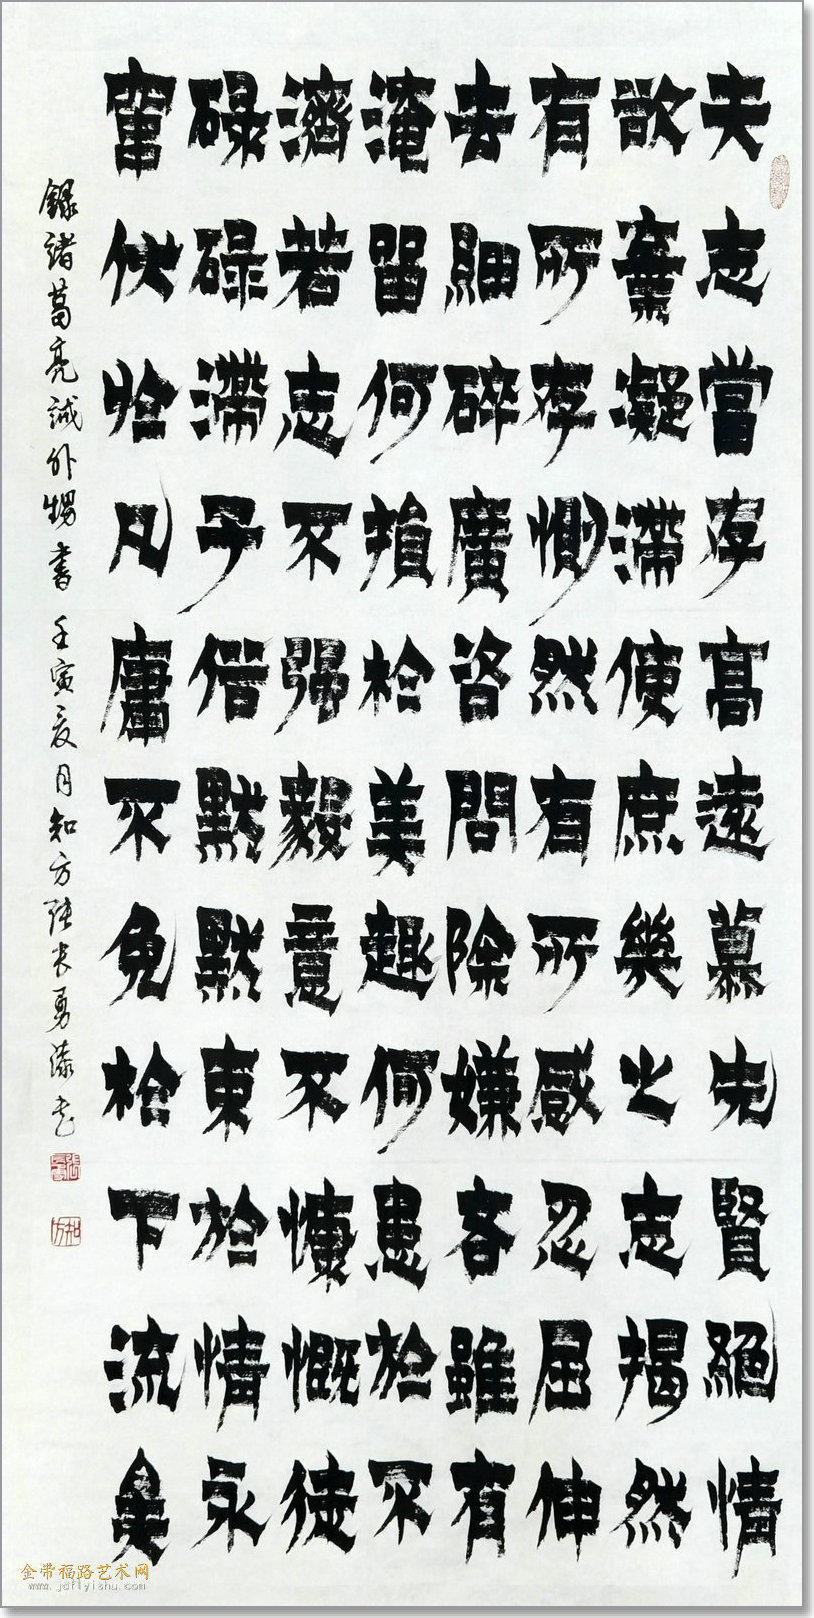 夫志當存高遠慕先賢絕情
欲棄凝滯使庶幾之志揭然
有所存惻然有所感忍屈伸
去細碎廣咨問除嫌吝雖有
淹留何損於美趣何患於不
濟若志不強毅意不慷慨徒
碌碌滯于俗默默束於情永
竄伏於凡庸不免於下流矣
錄諸葛亮誡外甥書 壬寅夏月知方張長勇漆书
知方
金带福路艺术网
www.jdflyishu.com